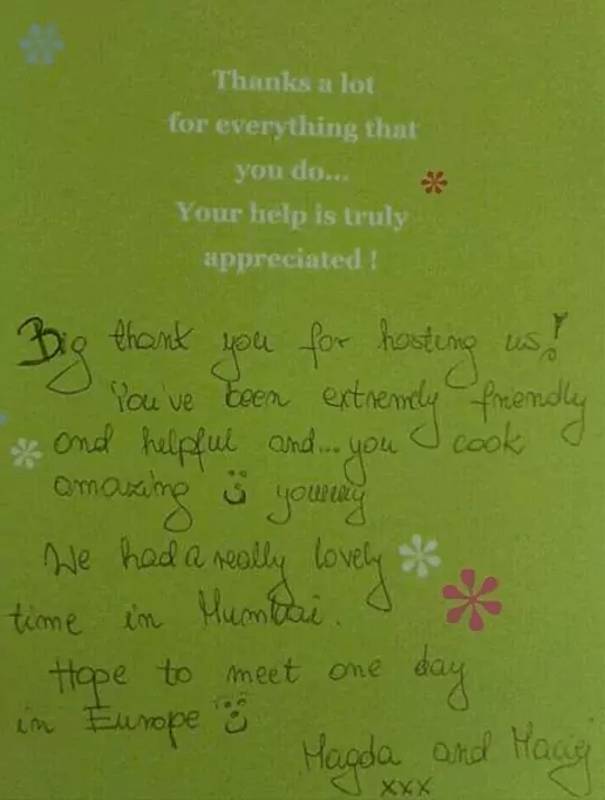 Thanks a lot
for everything that
you do...
Your help is truly
appreciated !
Big thank you for hosting us!
You've been extremely friendly
and helpful and... you cook
amazing ü youmy
We had a really lovely
time in Mumbai.
Hope to meet one day
in Europe ü
Magda and Maciej
xxx